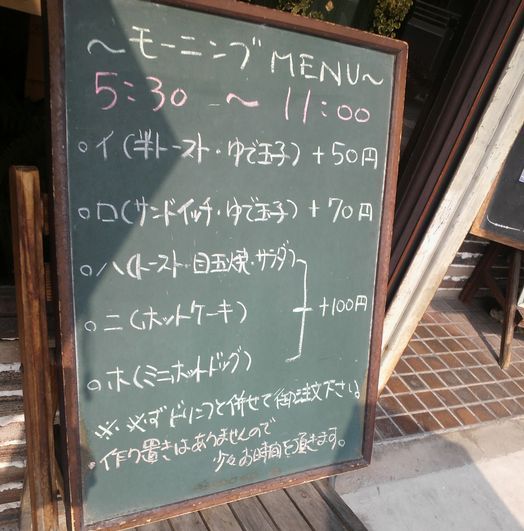 ～モーニングMENU～
5:30 ～ 11:00
○イ(半トースト・ゆで玉子)+50円
○ロ(サンドイッチ・ゆで玉子)+70円
○ハ(トースト・目玉焼・サラダ)
○ニ(ホットケーキ)
+100円
○ホ(ミニホットドッグ)
※必ずドリンクと併せて御注文下さい。
・作り置きはありませんので
少々お時間を頂きます。